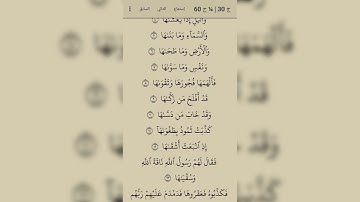 ج 30 | ¼ ح 60 إستماع التالي السابق
وَٱلَّيۡلِ إِذَا يَغۡشَىٰهَا
وَٱلسَّمَآءِ وَمَا بَنَىٰهَا
وَٱلۡأَرۡضِ وَمَا طَحَىٰهَا
وَنَفۡسٖ وَمَا سَوَّىٰهَا
فَأَلۡهَمَهَا فُجُورَهَا وَتَقۡوَىٰهَا
قَدۡ أَفۡلَحَ مَن زَكَّىٰهَا
وَقَدۡ خَابَ مَن دَسَّىٰهَا
كَذَّبَتۡ ثَمُودُ بِطَغۡوَىٰهَآ
إِذِ ٱنۢبَعَثَ أَشۡقَىٰهَا
فَقَالَ لَهُمۡ رَسُولُ ٱللَّهِ نَاقَةَ ٱللَّهِ
وَسُقۡيَٰهَا
فَكَذَّبُوهُ فَعَقَرُوهَا فَدَمۡدَمَ عَلَيۡهِمۡ رَبُّهُم